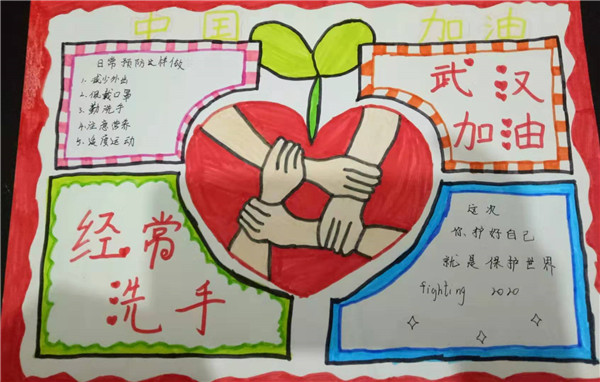 中国 加油
日常预防怎样做
1. 减少外出
2. 佩戴口罩
3. 勤洗手
4. 注意营养
5. 适度运动
武汉
加油
经常
洗手
这次
你护好自己
就是保护世界
fighting 2020